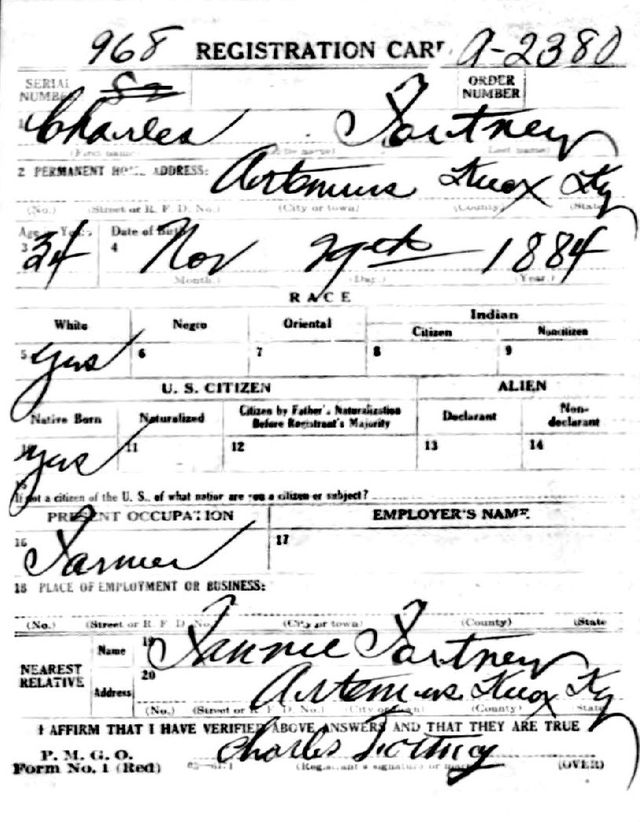 968 REGISTRATION CARD A-2380
SERIAL NUMBER ORDER NUMBER
1 Charles Fortney
(First name) (Middle name) (Last name)
2 PERMANENT HOME ADDRESS: Artemus Knox Ky
(No.) (Street or R. F. D. No.) (City or town) (County) (State
Age in Years Date of Birth
3 34 4 Nov 29th 1884
(Month.) (Day.) (Year.)
RACE
White Negro Oriental Indian
Citizen Noncitizen
5 yes 6 7 8 9
U. S. CITIZEN ALIEN
Native Born Naturalized Citizen by Father's Naturalization Before Registrant's Majority Declarant Non-declarant
yes 11 12 13 14
15
If not a citizen of the U. S., of what nation are you a citizen or subject?
PRESENT OCCUPATION EMPLOYER'S NAME
16 Farmer 17
18 PLACE OF EMPLOYMENT OR BUSINESS:
(No.) (Street or R. F. D. No.) (City or town) (County) (State
NEAREST RELATIVE Name 19 Fannie Fortney
Address 20 Artemus Knox Ky
(No.) (Street or R. F. D. No.) (City or town) (County) (State
I AFFIRM THAT I HAVE VERIFIED ABOVE ANSWERS AND THAT THEY ARE TRUE
P. M. G. O.
Form No. 1 (Red) Charles Fortney
(Registrant's signature or mark) (OVER)